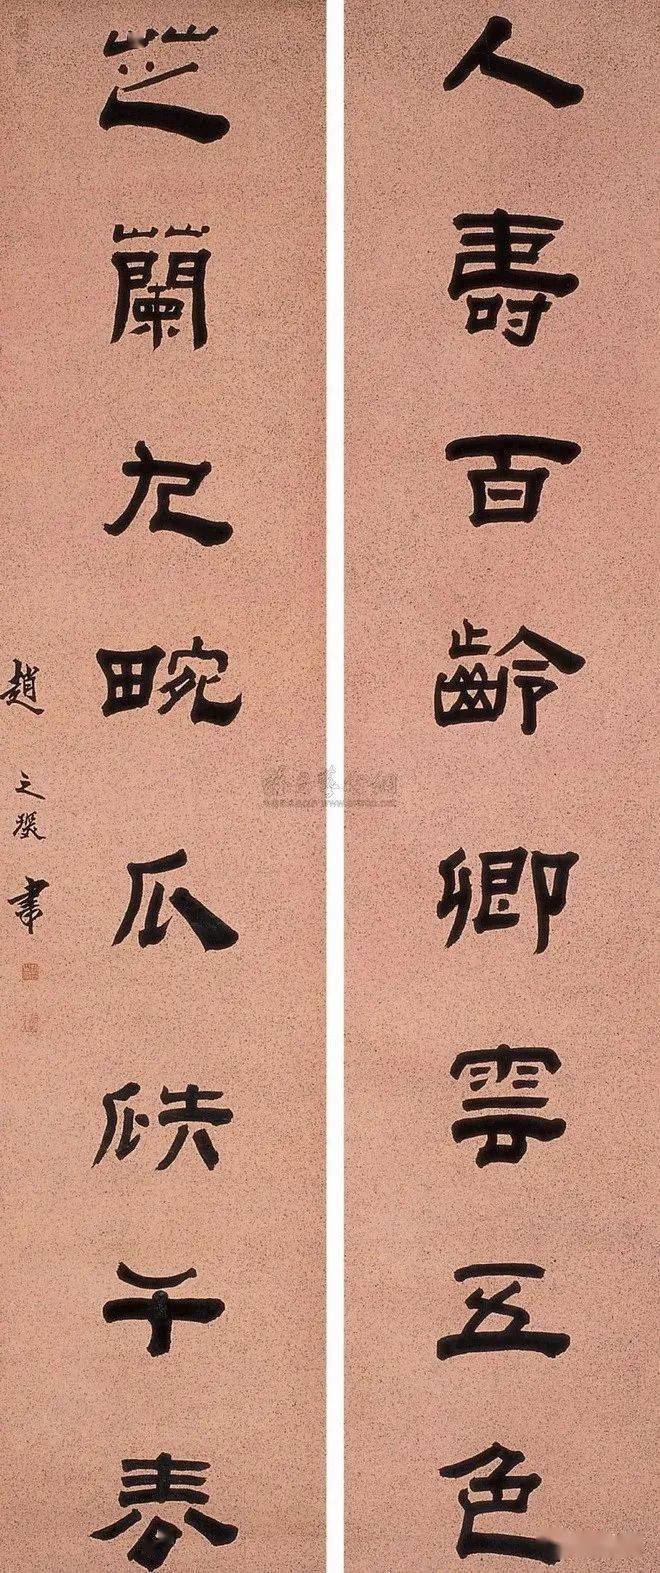 人壽百齡卿雲五色
芝蘭九畹瓜瓞千春
趙之琛書